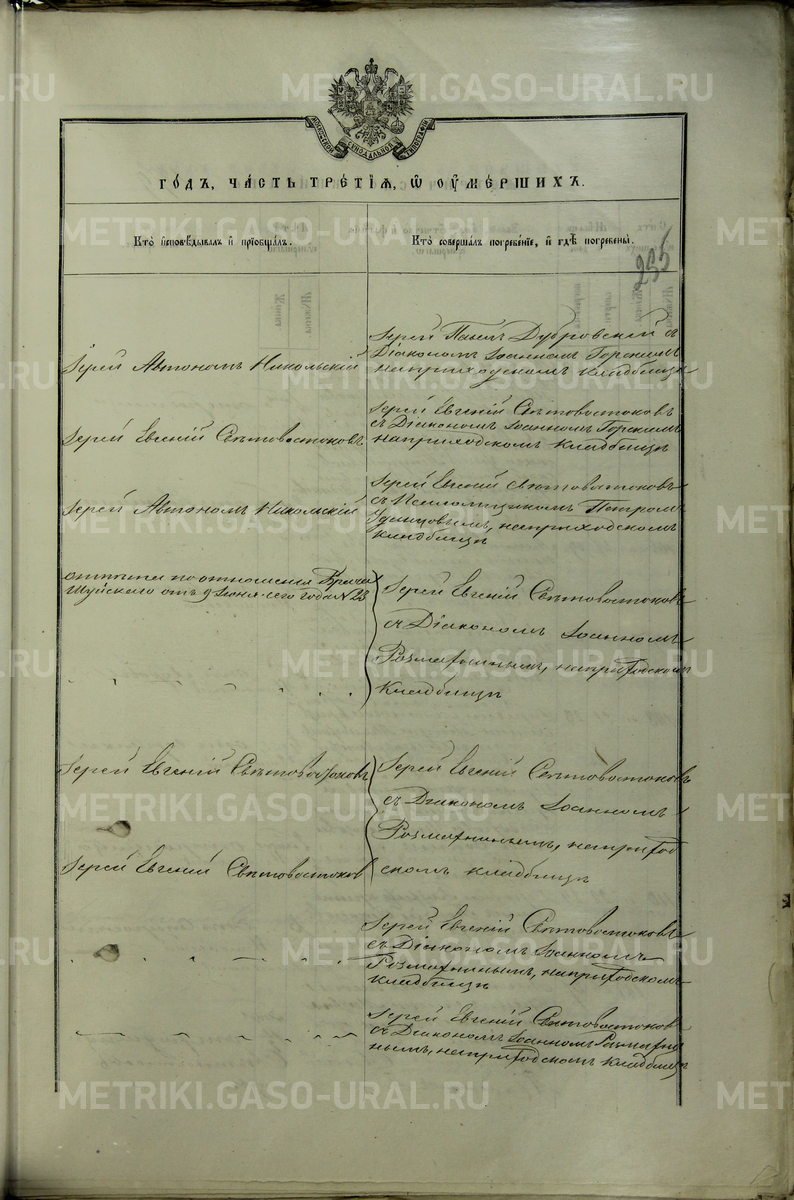 МОСКОВСКОЙ СѴНОДАЛЬНОЙ ТИПОГРАФІИ
ГО́ДЪ, ЧА́СТЬ ТРЕ́ТІѦ, Ѡ҆ ОУ҆МЕ́РШИХЪ.
Кто̀ и҆сповѣ́дывалъ и҆ прїѡбща́лъ.
Кто̀ соверша́лъ погребе́нїе, и҆ гдѣ̀ погребены̀.
235
Іерей Автономъ Никольскій
Іерей Павелъ Дубровскій съ
Діакономъ Іоанномъ Горскимъ
на приходскомъ кладбищѣ
Іерей Евгеній Свѣтовостоковъ
Іерей Евгеній Свѣтовостоковъ
съ Діакономъ Іоанномъ Горскимъ
на приходскомъ кладбищѣ
Іерей Автономъ Никольскій
Іерей Евгеній Свѣтовостоковъ
съ Псаломщикомъ Петромъ
на приходскомъ
кладбищѣ
по отношенія Врача
Шуйскаго отъ 9 Іюня сего года № 23
Іерей Евгеній Свѣтовостоковъ
съ Діакономъ Іоанномъ
Розмахнинымъ, на приходскомъ
кладбищѣ
Іерей Евгеній Свѣтовостоковъ
Іерей Евгеній Свѣтовостоковъ
съ Діакономъ Іоанномъ
Розмахнинымъ, на приход
скомъ кладбищѣ
Іерей Евгеній Свѣтовостоковъ
Іерей Евгеній Свѣтовостоковъ
съ Діакономъ Іоанномъ
Розмахнинымъ, на приходскомъ
кладбищѣ
Іерей Евгеній Свѣтовостоковъ
съ Діакономъ Іоанномъ Розмахни
нымъ, на приходскомъ кладбищѣ
METRIKI.GASO-URAL.RU